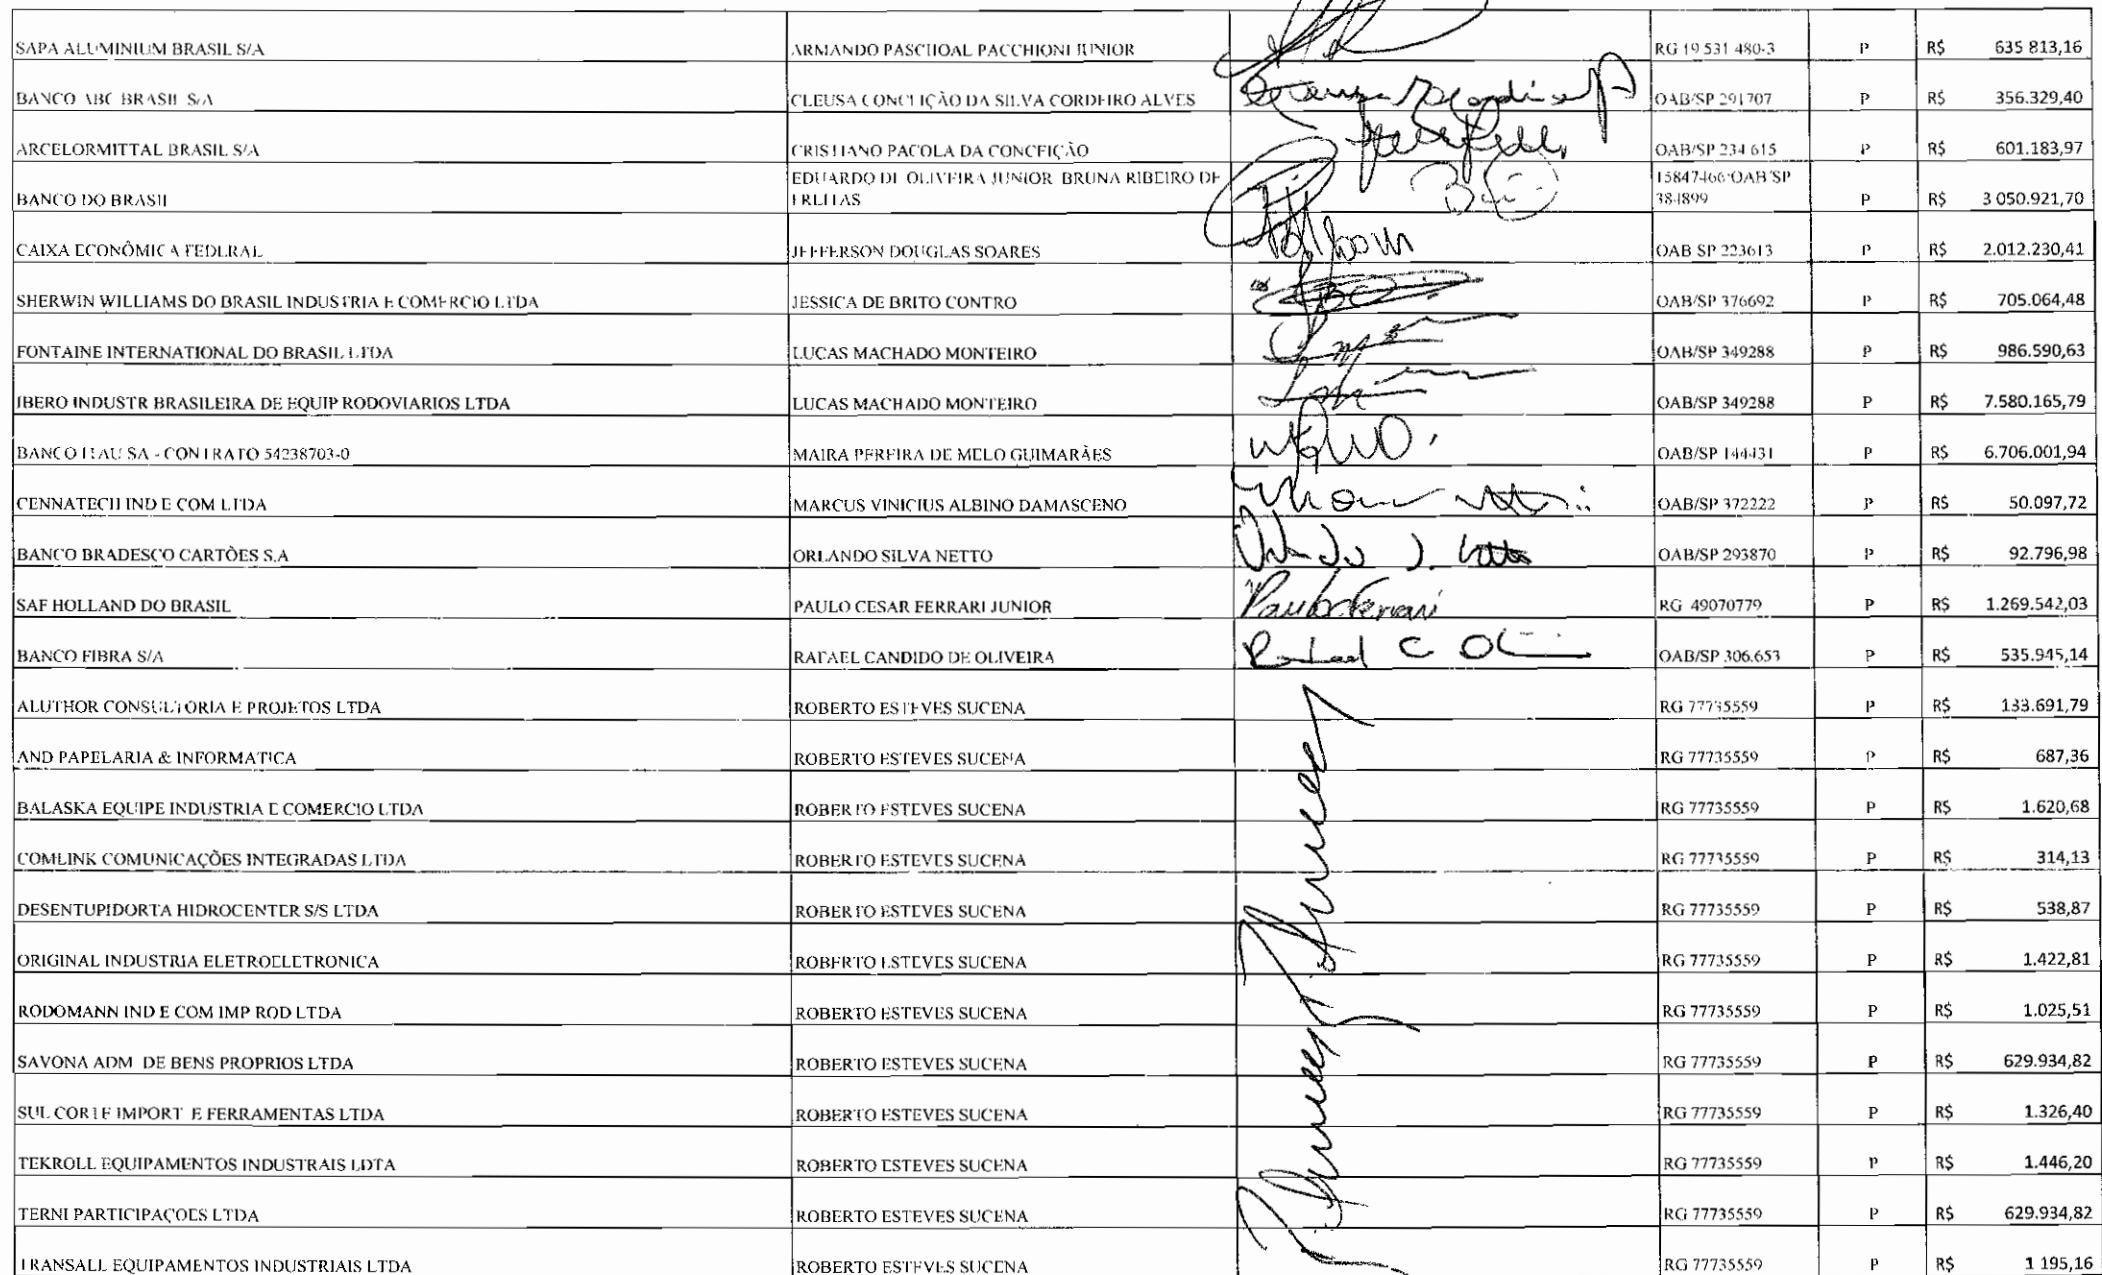 SAPA ALUMINIUM BRASIL S/A ARMANDO PASCHOAL PACCHIONI JUNIOR RG 19 531 480-3 P R$ 635 813,16
BANCO ABC BRASIL S/A CLEUSA CONCEIÇÃO DA SILVA CORDEIRO ALVES OAB/SP 291707 P R$ 356.329,40
ARCELORMITTAL BRASIL S/A CRISTIANO PACOLA DA CONCEIÇÃO OAB/SP 234 615 P R$ 601.183,97
EDUARDO DE OLIVEIRA JUNIOR BRUNA RIBEIRO DE 15847466 OAB SP
BANCO DO BRASIL FREITAS 384899 P R$ 3 050.921,70
CAIXA ECONÔMICA FEDERAL JEFFERSON DOUGLAS SOARES OAB SP 223613 P R$ 2.012.230,41
SHERWIN WILLIAMS DO BRASIL INDUSTRIA E COMERCIO LTDA JESSICA DE BRITO CONTRO OAB/SP 376692 P R$ 705.064,48
FONTAINE INTERNATIONAL DO BRASIL LTDA LUCAS MACHADO MONTEIRO OAB/SP 349288 P R$ 986.590,63
IBERO INDUSTR BRASILEIRA DE EQUIP RODOVIARIOS LTDA LUCAS MACHADO MONTEIRO OAB/SP 349288 P R$ 7.580.165,79
BANCO ITAU SA - CONTRATO 54238703-0 MAIRA PEREIRA DE MELO GUIMARÃES OAB/SP 144431 P R$ 6.706.001,94
CENNATECH IND E COM LTDA MARCUS VINICIUS ALBINO DAMASCENO OAB/SP 372222 P R$ 50.097,72
BANCO BRADESCO CARTÕES S.A ORLANDO SILVA NETTO OAB/SP 293870 P R$ 92.796,98
SAF HOLLAND DO BRASIL PAULO CESAR FERRARI JUNIOR RG 49070779 P R$ 1.269.542,03
BANCO FIBRA S/A RAFAEL CANDIDO DE OLIVEIRA OAB/SP 306.653 P R$ 535.945,14
ALUTHOR CONSULTORIA E PROJETOS LTDA ROBERTO ESTEVES SUCENA RG 77735559 P R$ 133.691,79
AND PAPELARIA & INFORMATICA ROBERTO ESTEVES SUCENA RG 77735559 P R$ 687,36
BALASKA EQUIPE INDUSTRIA E COMERCIO LTDA ROBERTO ESTEVES SUCENA RG 77735559 P R$ 1.620,68
COMLINK COMUNICAÇÕES INTEGRADAS LTDA ROBERTO ESTEVES SUCENA RG 77735559 P R$ 314,13
DESENTUPIDORTA HIDROCENTER S/S LTDA ROBERTO ESTEVES SUCENA RG 77735559 P R$ 538,87
ORIGINAL INDUSTRIA ELETROELETRONICA ROBERTO ESTEVES SUCENA RG 77735559 P R$ 1.422,81
RODOMANN IND E COM IMP ROD LTDA ROBERTO ESTEVES SUCENA RG 77735559 P R$ 1.025,51
SAVONA ADM DE BENS PROPRIOS LTDA ROBERTO ESTEVES SUCENA RG 77735559 P R$ 629.934,82
SUL CORTE IMPORT E FERRAMENTAS LTDA ROBERTO ESTEVES SUCENA RG 77735559 P R$ 1.326,40
TEKROLL EQUIPAMENTOS INDUSTRAIS LDTA ROBERTO ESTEVES SUCENA RG 77735559 P R$ 1.446,20
TERNI PARTICIPAÇOES LTDA ROBERTO ESTEVES SUCENA RG 77735559 P R$ 629.934,82
TRANSALL EQUIPAMENTOS INDUSTRIAIS LTDA ROBERTO ESTEVES SUCENA RG 77735559 P R$ 1 195,16